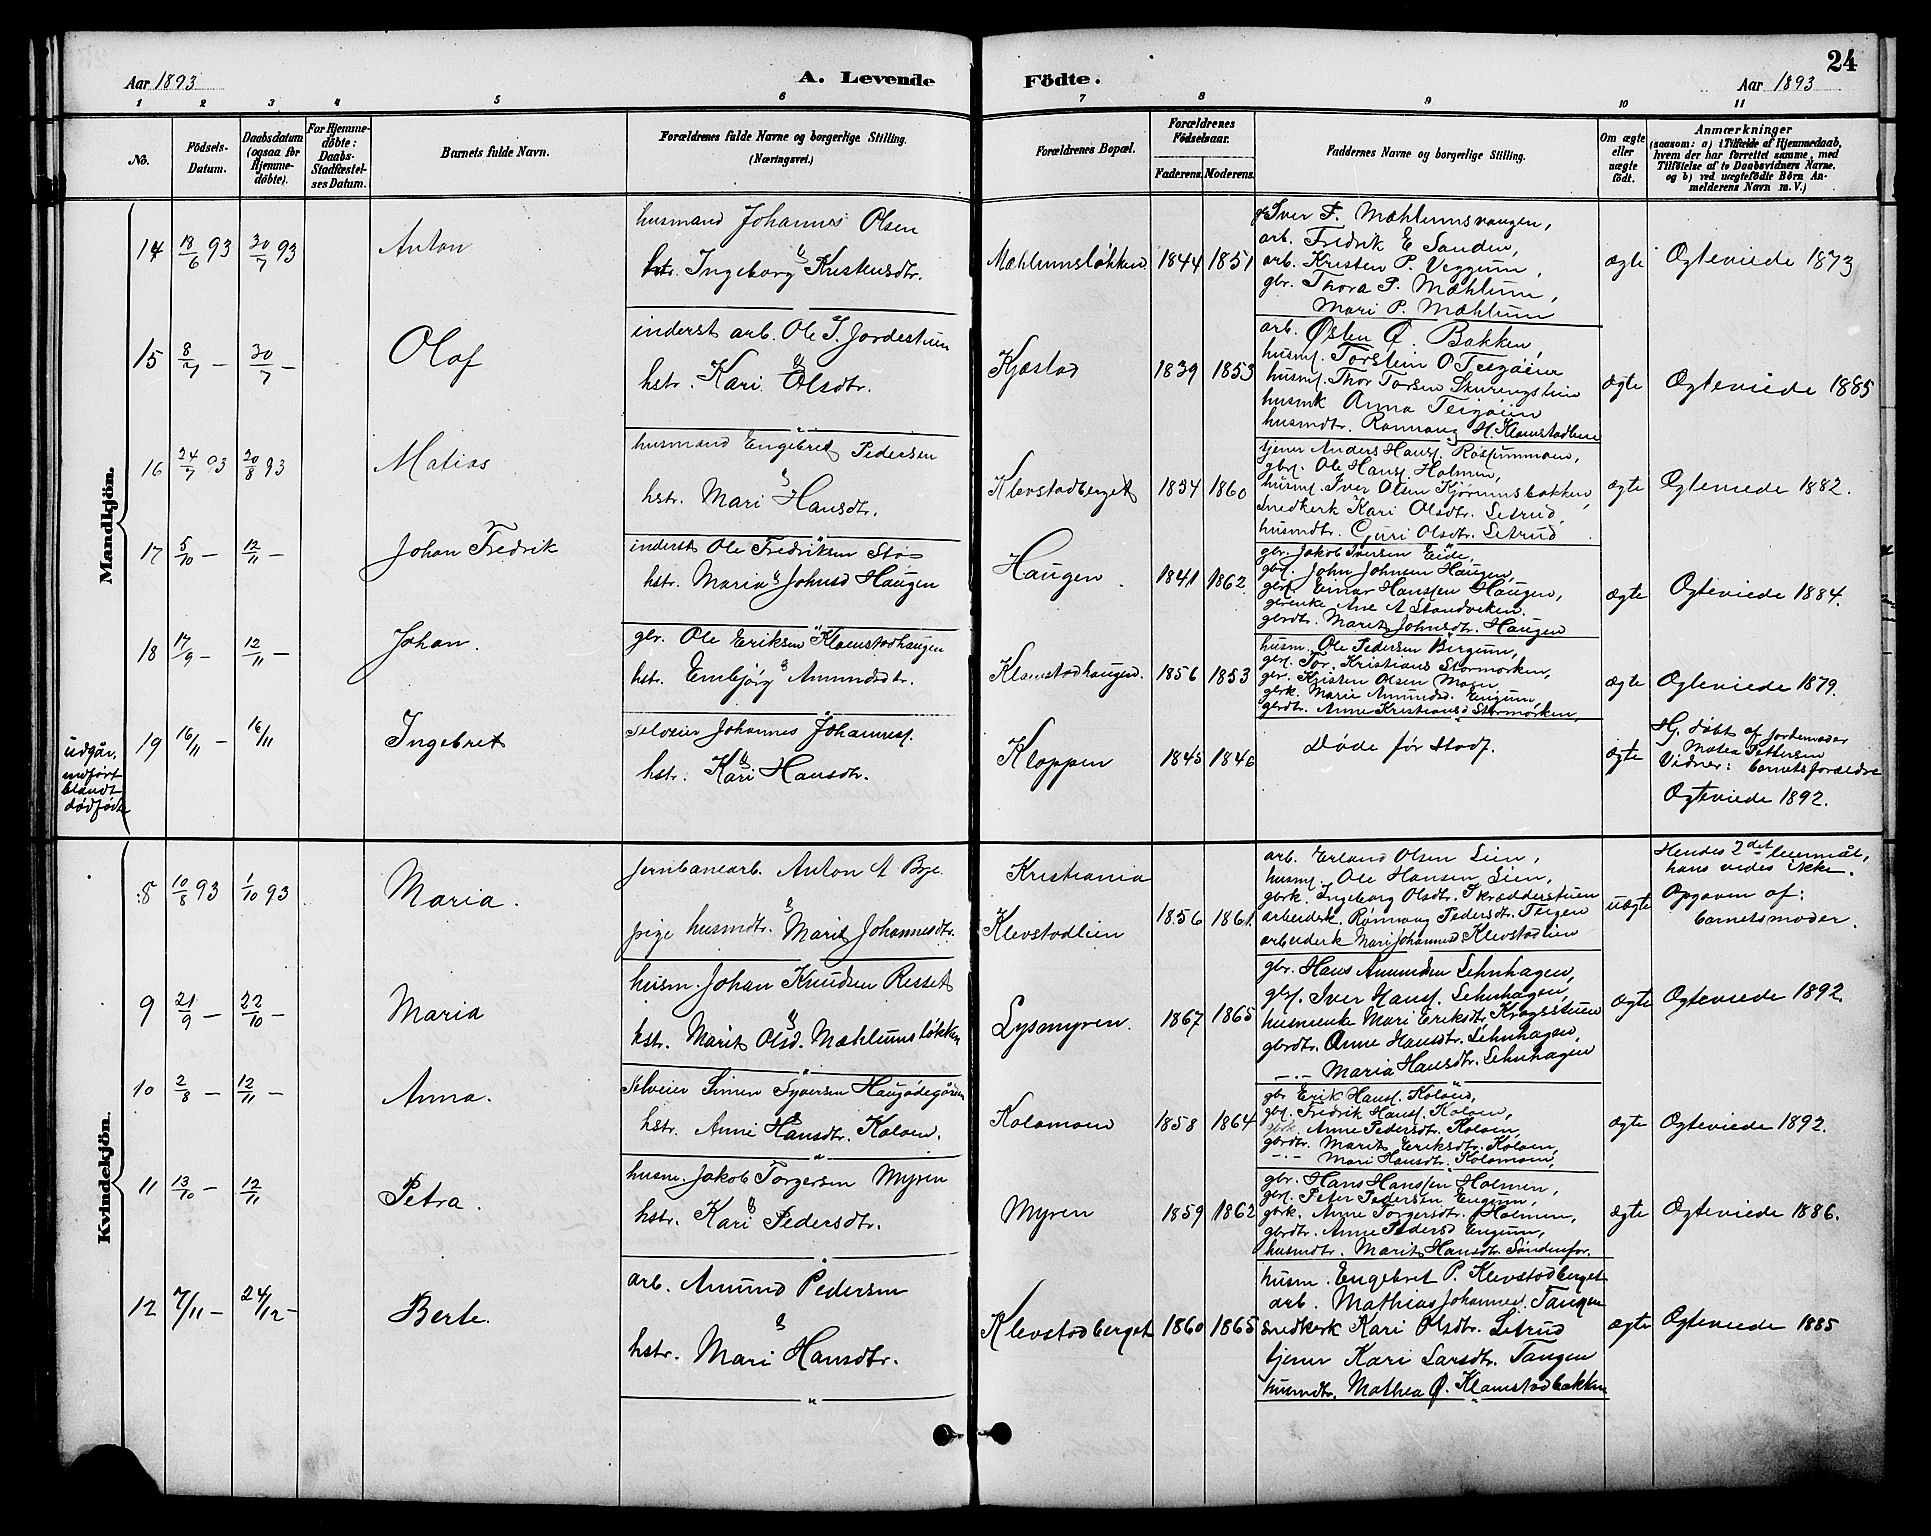 24
Aar 1893
A. Levende Födte.
Aar 1893
1 2 3 4 5 6 7 8 9 10 11
No.
Födsels-Datum.
Daabsdatum (ogsaa for Hjemme-döbte).
For Hjemme-döbte: Daabs-Stadfæstel-ses Datum.
Barnets fulde Navn.
Forældrenes fulde Navne og borgerlige Stilling.
(Næringsvei.)
Forældrenes Bopæl.
Forældrenes Födselsaar.
Faderens. Moderens.
Faddernes Navne og borgerlige Stilling.
Om ægte eller uægte födt.
Anmærkninger
(saasom: a) i Tilfælde af Hjemmedaab, hvem der har forrettet samme, med Tilföielse af to Daabsvidners Navne, og b) ved uægtefödte Börn An-melderens Navn m. V.)
Mandkjön.
14 18/6 93 30/7 93 Anton
husmand Johannes Olsen
& hstr. Ingeborg Kristensdtr.
Mæhlumsløkken 1844 1851
Iver F. Mæhlumsvangen,
arb. Fredrik E Sanden,
arb. Kristen P. Veggum,
gbr. Thora P. Mæhlum,
Mari P. Mæhlum
ægte Ægteviede 1873
15 8/7 - 30/7 - Olaf
inderst arb. Ole T. Jordestuen
& hstr. Kari Olsdtr.
Kjæstad 1839 1853
arb. Østen Ø. Bakken,
husmf. Torstein O Teigøien
husmf. Thor Torsen Skuringstuen
husmk Anna Teigøien
husmdtr. Rannoug H. Klomstadlien
ægte Ægteviede 1885
16 24/7 93 20/8 93 Matias
husmand Engebret Pedersen
& hstr. Mari Hansdtr.
Klevstadberget 1834 1860
tjener Anders Hansf. Rospummoen,
gbf. Ole Hansf. Holmen,
husmf. Iver Olsen Kjørumsbakken,
snedkerk Kari Olsdtr. Letrud,
husmdtr. Guri Olsdtr. Letrud.
ægte Ægteviede 1882.
17 5/10 - 12/11 - Johan Fredrik
inderst Ole Fredriksen Stø
& hstr. Maria Johnsd Haugen
Haugen. 1841 1862.
gbr. Jakob Iversen Eide,
gbf. John Johnsen Haugen,
gbf. Einar Hanssen Haugen,
gbrenke Ane A Strandviken.
gbrdtr. Marit Johnsdtr. Haugen
ægte Ægteviede 1884.
18 17/9 - 12/11 - Johan.
gbr. Ole Eriksen Klomstadhaugen
& hstr. Embjørg Amundsdtr.
Klomstadhaugen. 1856 1853
husm. Ole Pedersen Bergum,
gbf. Tor Kristians Stormorken,
gbr. Kristen Olsen Moen,
gbrk. Marie Amundsd. Engum,
gbrdtr. Anne Kristiansd Stormorken,
ægte Ægteviede 1879.
udgår, indført blandt dødfødte
19 16/11 16/11 Ingebret
selveier Johannes Johannesf.
& hstr. Kari Hansdtr.
Kloppen 1845 1846
Døde før Stadf.
ægte
Hj. døbt af Jordemoder
Matea Pettersen
Vidner: barnets forældre
Ægteviede 1892.
Kvindekjön.
8 10/8 93 1/10 93 Maria.
jernbanearb. Anton A Bye.
& pige husmdtr. Marit Johannesdtr.
Kristiania
Klevstadlien 1856 1861
arb. Erland Olsen Lien,
husmf. Ole Hansen Lien,
gbrk. Ingeborg Olsdtr. Skrædderstuen
arbeiderk. Rønnoug Pedersdtr. Teigen
arbeiderk Mari Johannesd Klevstadlien
uægte
Hendes 2det leiermål,
hans vides ikke.
Opgaven af:
barnets moder.
9 21/9 - 22/10 - Maria
husm. Johan Knudsen Resset
& hstr. Marit Olsd. Mæhlumsløkken
Lysmyren. 1867 1865
gbr. Hans Amundsen Lehnhagen,
gbf. Iver Hansf. Lehnhagen,
husmenke Mari Eriksdtr. Kragsstuen
gbrdtr. Anne Hansdtr. Lehnhagen,
-·- Maria Hansdtr. Lehnhagen
ægte Ægteviede 1892.
10 2/8 - 12/11 - Anna.
selveier Simen Syversen Haugødegården
& hstr. Anne Hansdtr. Koloen.
Kolomoen 1858 1864
gbr Erik Hansf. Koloen,
gbf. Fredrik Hansf. Koloen,
gbrk. Anne Pedersdtr. Koloen,
gbrdtr. Marit Eriksdtr. Koloen,
-·- Mari Hansdtr. Kolomoen,
ægte Ægteviede 1892.
11 13/10 - 12/11 Petra.
husm. Jakob Torgersen Myren
& hstr. Kari Pedersdtr.
Myren 1859 1862
gbr. Hans Hanssen Holmen,
gbf. Peter Pedersen Engum,
gbrk. Anne Torgersdtr. Holmen,
gbrdtr. Anne Pedersd Engum,
husmdtr. Marit Hansdtr. Søndenfor.
ægte Ægteviede 1886.
12 7/11 - 24/12 - Berte.
arb. Amund Pedersen
& hstr. Mari Hansdtr.
Klevstadberget 1860 1865
husm. Engebret P. Klevstadberget
arb. Mathias Johannes. Tangen
snedkerk Kari Olsdtr. Letrud
tjener Kari Larsdtr. Tangen
husmdtr. Mathea O. Klomstadbakken
ægte Ægteviede 1885